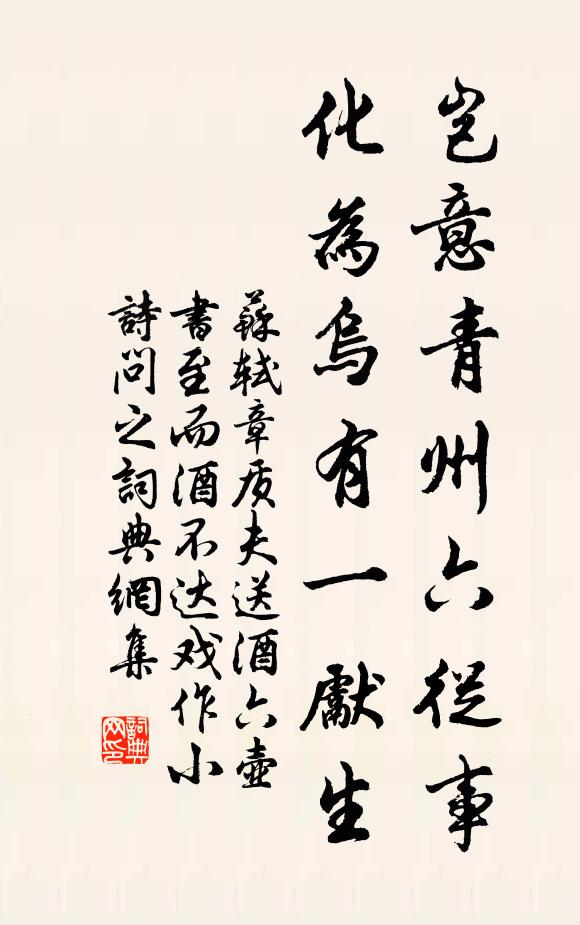 岂意青州六從事
化為烏有一獻生
蘇軾章质夫送酒六壺
書至而酒不达戏作小
詩問之詞典網集
詞典网印